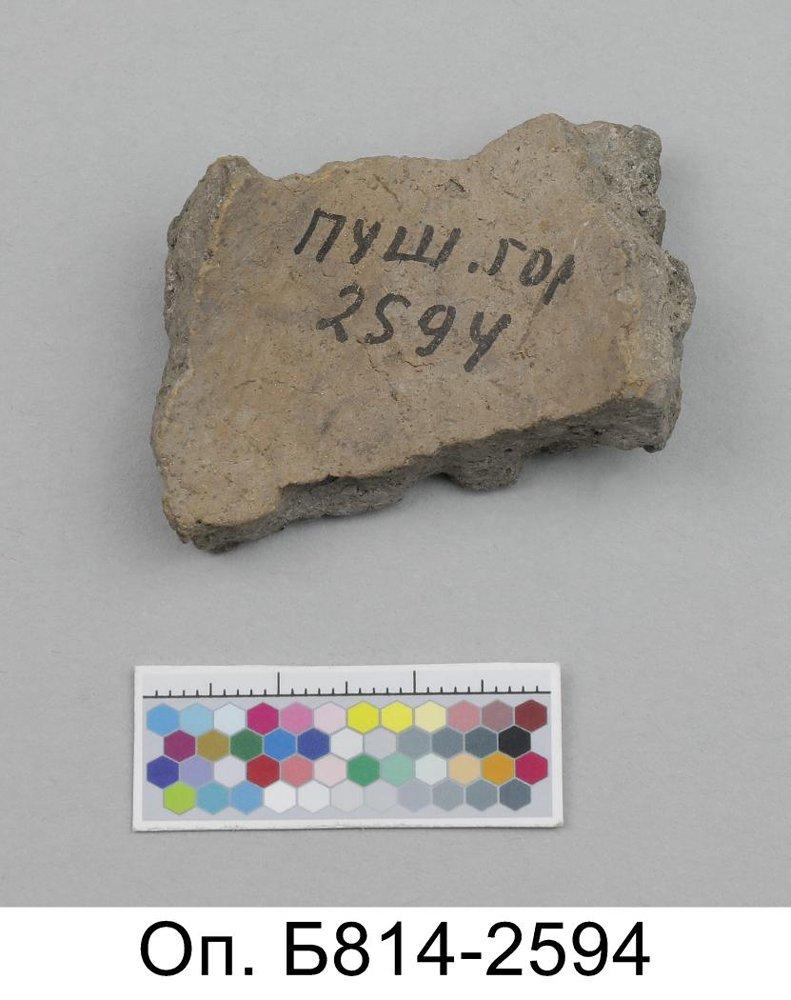 ПУШ.ГОР
2594
Оп. Б814-2594